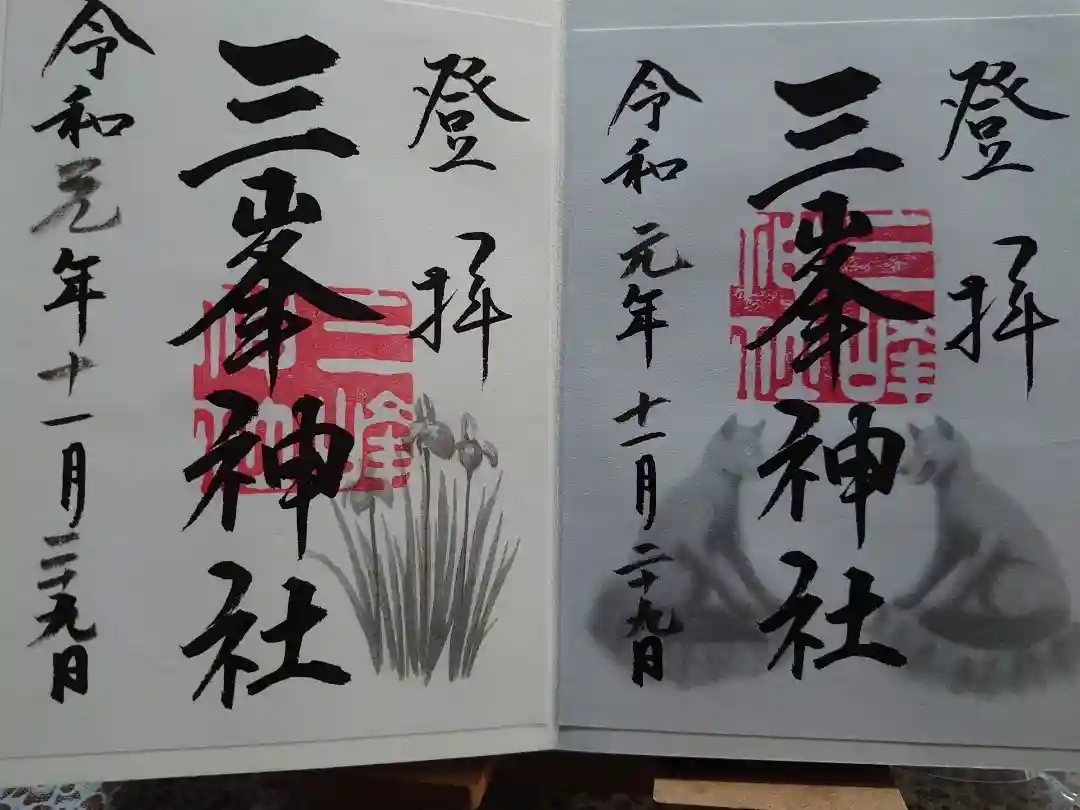 登拝
三峯神社
令和元年十一月二十九日
登拝
三峯神社
令和元年十一月二十九日